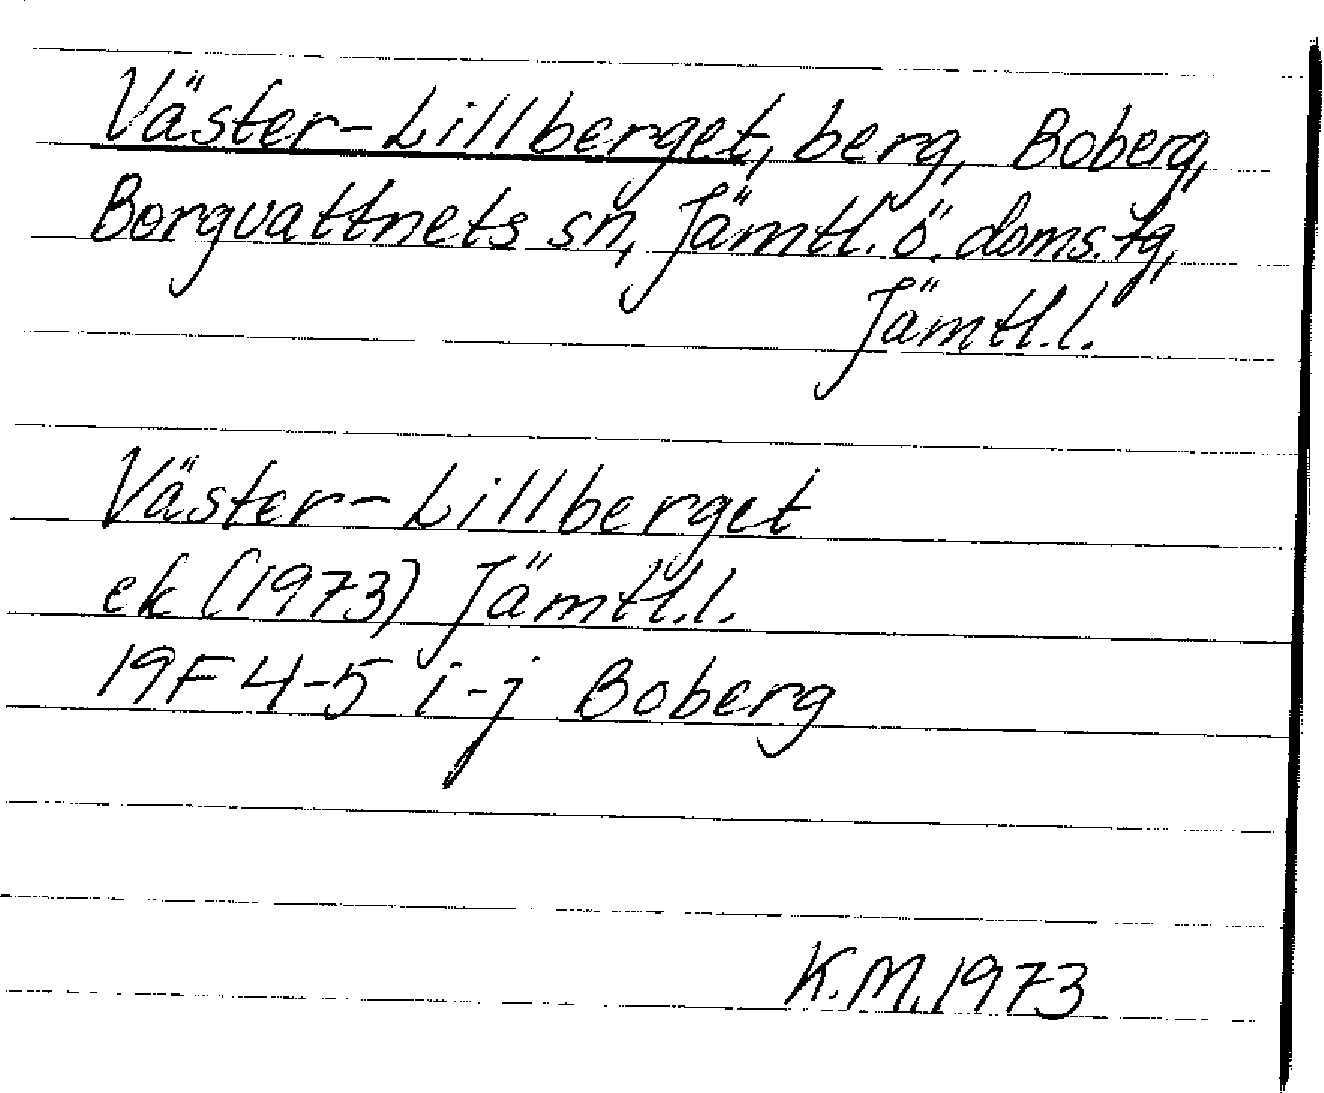 Väster-Lillberget, berg, Boberg,
Borgvattnets sn, Jämtl. ö. doms. tg,
Jämtl.l.
Väster-Lillberget
ek (1973) Jämtl.l.
19F 4-5 i-j Boberg
K.M. 1973